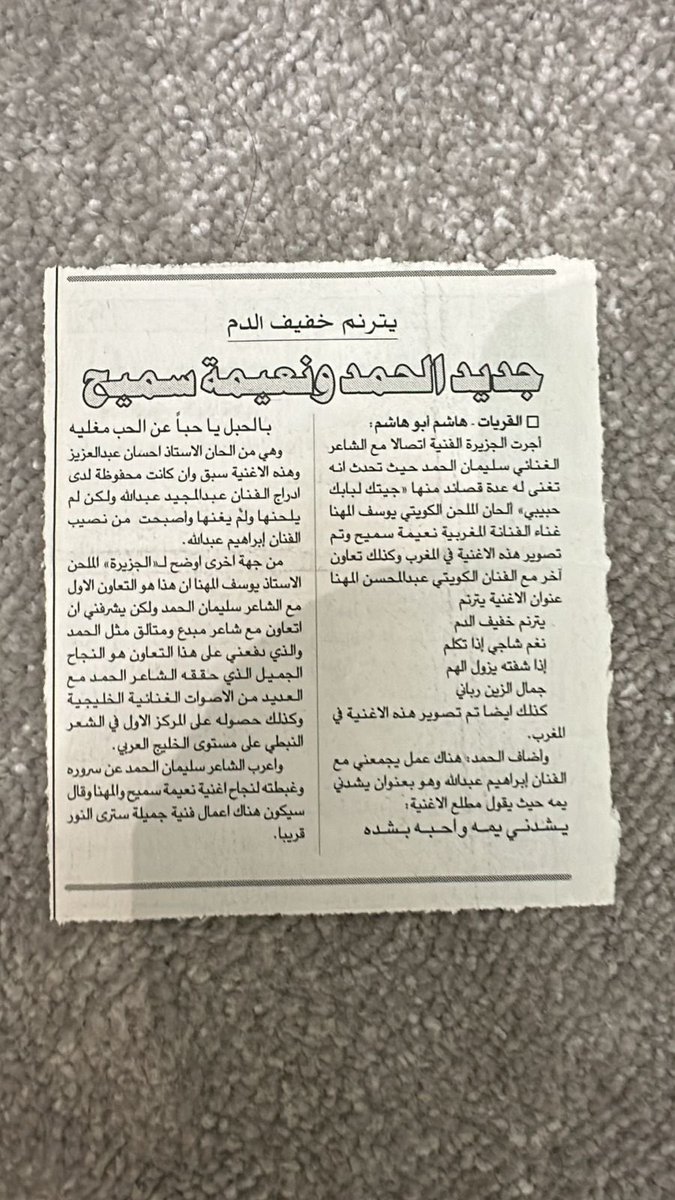 يترنم خفيف الدم
جديد الحمد ونعيمة سميح
□ القريات - هاشم أبو هاشم:
أجرت الجزيرة الفنية اتصالا مع الشاعر
الغنائي سليمان الحمد حيث تحدث انه
تغنى له عدة قصائد منها «جيتك لبابك
حبيبي» الحان الملحن الكويتي يوسف المهنا
غناء الفنانة المغربية نعيمة سميح وتم
تصوير هذه الاغنية في المغرب وكذلك تعاون
آخر مع الفنان الكويتي عبدالمحسن المهنا
عنوان الاغنية يترنم
يترنم خفيف الدم
نغم شاجي إذا تكلم
إذا شفته يزول الهم
جمال الزين رباني
كذلك ايضا تم تصوير هذه الاغنية في
المغرب.
وأضاف الحمد: هناك عمل يجمعني مع
الفنان إبراهيم عبدالله وهو بعنوان يشدني
يمه حيث يقول مطلع الاغنية:
يشدني يمه وأحبه بشده
بالحبل يا حباً عن الحب مغليه
وهي من الحان الاستاذ احسان عبدالعزيز
وهذه الاغنية سبق وان كانت محفوظة لدى
ادراج الفنان عبدالمجيد عبدالله ولكن لم
يلحنها ولم يغنها وأصبحت من نصيب
الفنان إبراهيم عبدالله.
من جهة أخرى اوضح لـ«الجزيرة» الملحن
الاستاذ يوسف المهنا ان هذا هو التعاون الاول
مع الشاعر سليمان الحمد ولكن يشرفني ان
اتعاون مع شاعر مبدع ومتالق مثل الحمد
والذي دفعني على هذا التعاون هو النجاح
الجميل الذي حققه الشاعر الحمد مع
العديد من الاصوات الغنائية الخليجية
وكذلك حصوله على المركز الاول في الشعر
النبطي على مستوى الخليج العربي.
وأعرب الشاعر سليمان الحمد عن سروره
وغبطته لنجاح اغنية نعيمة سميح والمهنا وقال
سيكون هناك اعمال فنية جميلة سترى النور
قريبا.